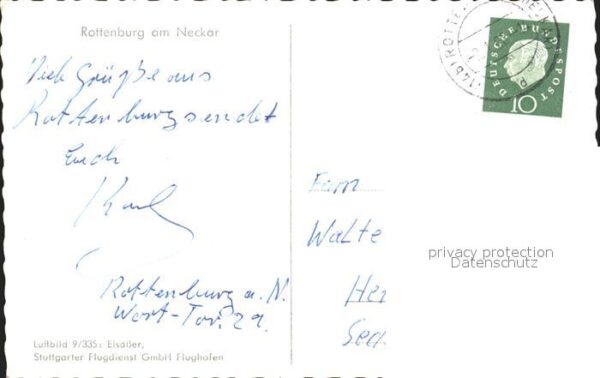 Rottenburg am Neckar
Viele Grüße aus
Rottenburg sendet
Euch
Karl
Rottenburg a. N.
Luftbild 9/335: Elsäßer,
Stuttgarter Flugdienst GmbH Flughafen
DEUTSCHE BUNDESPOST
10
(14b) ROTTE
Fam
Walte
He
privacy protection
Datenschutz